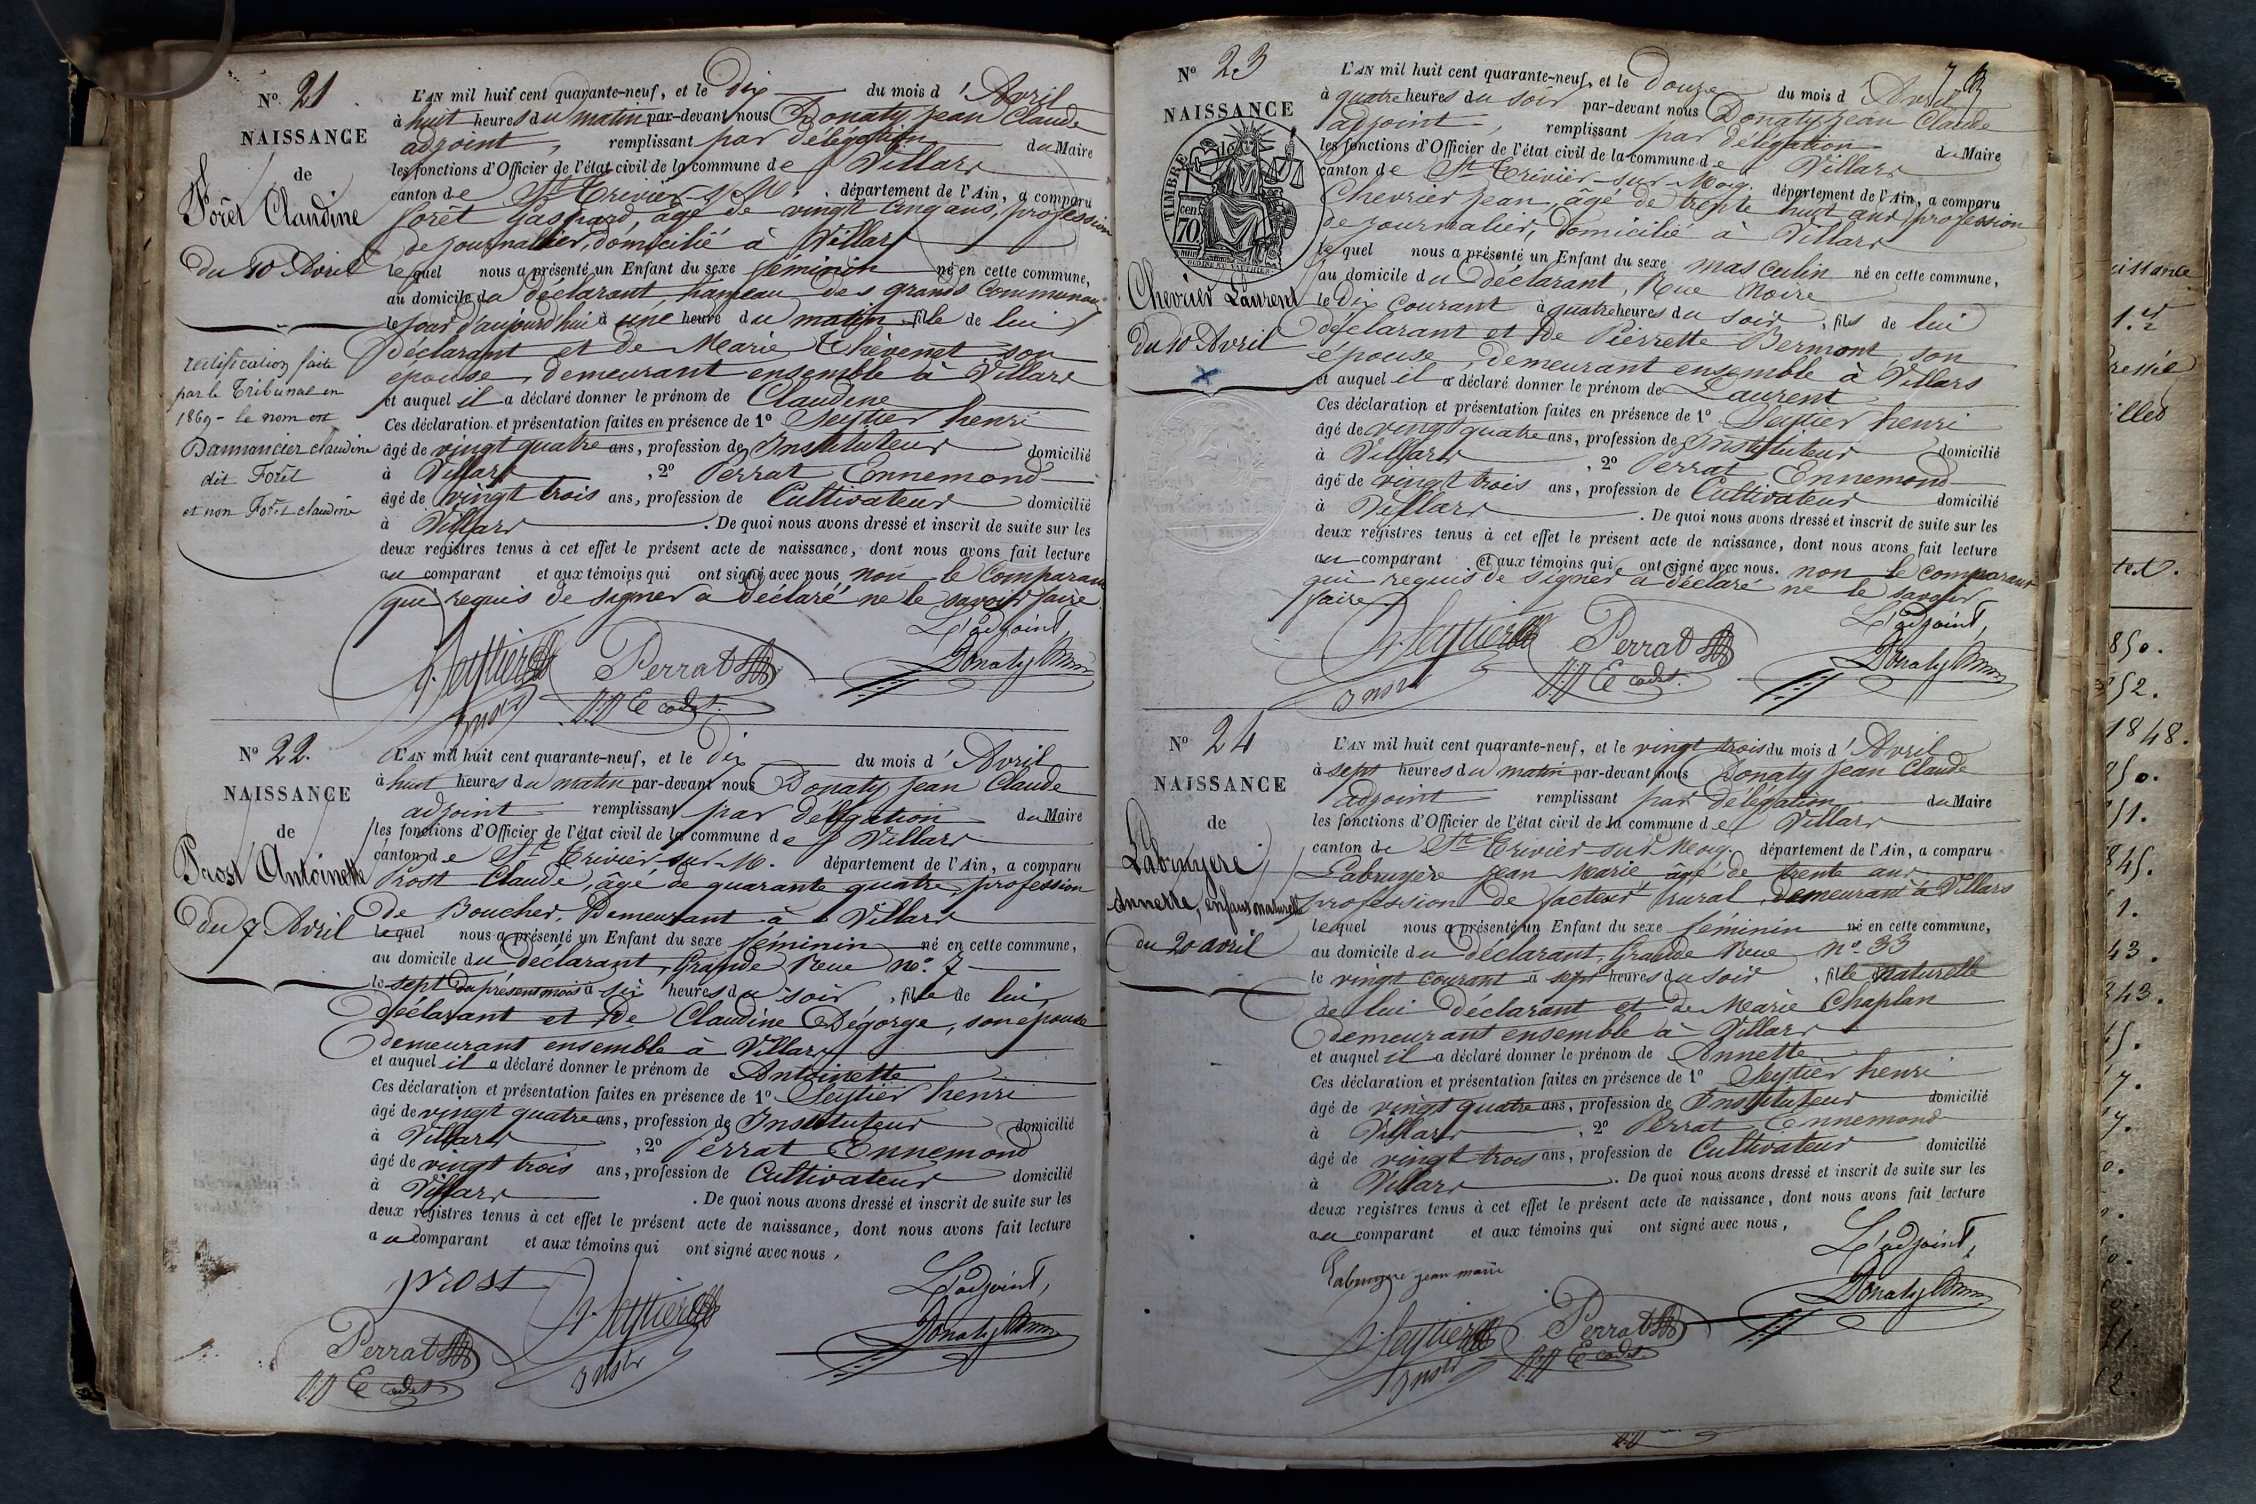 N° 21
NAISSANCE
de
Forêt Claudine
du 10 Avril
rectification faite
par le Tribunal en
1869 - le nom est
Dannancier claudine
dit Forêt
et non Forêt claudine
L'AN mil huit cent quarante-neuf, et le dix du mois d' Avril
à huit heures du matin par-devant nous Donaty jean Claude
adjoint, remplissant par délégation du Maire
les fonctions d'Officier de l'état civil de la commune de Villars
canton de St Trivier s/ M. département de l'Ain, a comparu
forêt Gaspard, âgé de vingt cinq ans, profession
de journalier, domicilié à Villars
lequel nous a présenté un Enfant du sexe féminin né en cette commune,
au domicile du déclarant, hameau des grands Communaux
le jour d'aujourd'hui à une heure du matin, fille de lui
déclarant et de Marie Thévenet son
épouse, demeurant ensemble à Villars
et auquel il a déclaré donner le prénom de Claudine
Ces déclaration et présentation faites en présence de 1° Seytier henri
âgé de vingt quatre ans, profession de Instituteur domicilié
à Villars, 2° Perrat Ennemond
âgé de vingt trois ans, profession de Cultivateur domicilié
à Villars. De quoi nous avons dressé et inscrit de suite sur les
deux registres tenus à cet effet le présent acte de naissance, dont nous avons fait lecture
au comparant et aux témoins qui ont signé avec nous, non le comparant
qui requis de signer a déclaré ne le savoir faire
L'adjoint,
h. Seytier Perrat Donaty
instr P.P E cadet.
N° 22.
NAISSANCE
de
Prost Antoinette
du 7 Avril
L'AN mil huit cent quarante-neuf, et le dix du mois d' Avril
à huit heures du matin par-devant nous Donaty jean Claude
adjoint remplissant par délégation du Maire
les fonctions d'Officier de l'état civil de la commune de Villars
canton de St Trivier sur M. département de l'Ain, a comparu
Prost Claude, âgé de quarante quatre, profession
de Boucher, Demeurant à Villars
lequel nous a présenté un Enfant du sexe féminin né en cette commune,
au domicile du déclarant, Grande Rue n°. 7
le sept du présent mois à six heures du soir, fille de lui
déclarant et de Claudine Dégorge, son épouse
demeurant ensemble à Villars
et auquel il a déclaré donner le prénom de Antoinette
Ces déclaration et présentation faites en présence de 1° Seytier henri
âgé de vingt quatre ans, profession de Instituteur domicilié
à Villars, 2° Perrat Ennemond
âgé de vingt trois ans, profession de Cultivateur domicilié
à Villars. De quoi nous avons dressé et inscrit de suite sur les
deux registres tenus à cet effet le présent acte de naissance, dont nous avons fait lecture
au comparant et aux témoins qui ont signé avec nous,
prost h. Seytier L'adjoint,
Perrat instr Donaty
P.P E cadet
N° 23
NAISSANCE
TIMBRE
70
Chevrier Laurent
du 10 Avril
L'AN mil huit cent quarante-neuf, et le douze du mois d' Avril
à quatre heures du soir par-devant nous Donaty jean Claude
adjoint, remplissant par délégation du Maire
les fonctions d'Officier de l'état civil de la commune de Villars
canton de St Trivier-sur-Moig. département de l'Ain, a comparu
Chevrier jean, âgé de trente huit ans profession
de journalier, domicilié à Villars
lequel nous a présenté un Enfant du sexe masculin né en cette commune,
au domicile du déclarant, Rue Noire
le dix courant à quatre heures du soir, fils de lui
déclarant et de Pierrette Bermont, son
épouse, demeurant ensemble à Villars
et auquel il a déclaré donner le prénom de Laurent
Ces déclaration et présentation faites en présence de 1° Seytier henri
âgé de vingt quatre ans, profession de Instituteur domicilié
à Villars, 2° Perrat Ennemond
âgé de vingt trois ans, profession de Cultivateur domicilié
à Villars. De quoi nous avons dressé et inscrit de suite sur les
deux registres tenus à cet effet le présent acte de naissance, dont nous avons fait lecture
au comparant et aux témoins qui ont signé avec nous. non le comparant
qui requis de signer a déclaré ne le savoir
faire.
L'adjoint,
h. Seytier Perrat Donaty
instr P.P E cadet.
N° 24
NAISSANCE
de
Labruyere
Annette, enfant naturelle
du 20 avril
L'AN mil huit cent quarante-neuf, et le vingt trois du mois d' Avril
à sept heures du matin par-devant nous Donaty jean Claude
adjoint remplissant par délégation du Maire
les fonctions d'Officier de l'état civil de la commune de Villars
canton de St Trivier sur Moig. département de l'Ain, a comparu
Labruyère jean Marie âgé de trente ans
profession de facteur rural, demeurant à Villars
lequel nous a présenté un Enfant du sexe féminin né en cette commune,
au domicile du déclarant, Grande Rue n°. 33
le vingt courant à sept heures du soir, fille naturelle
de lui déclarant et de Marie Chaplan
demeurant ensemble à Villars
et auquel il a déclaré donner le prénom de Annette
Ces déclaration et présentation faites en présence de 1° Seytier henri
âgé de vingt quatre ans, profession de Instituteur domicilié
à Villars, 2° Perrat Ennemond
âgé de vingt trois ans, profession de Cultivateur domicilié
à Villars. De quoi nous avons dressé et inscrit de suite sur les
deux registres tenus à cet effet le présent acte de naissance, dont nous avons fait lecture
au comparant et aux témoins qui ont signé avec nous,
L'adjoint,
Labruyere jean marie
h. Seytier Perrat Donaty
instr P.P E cadet.